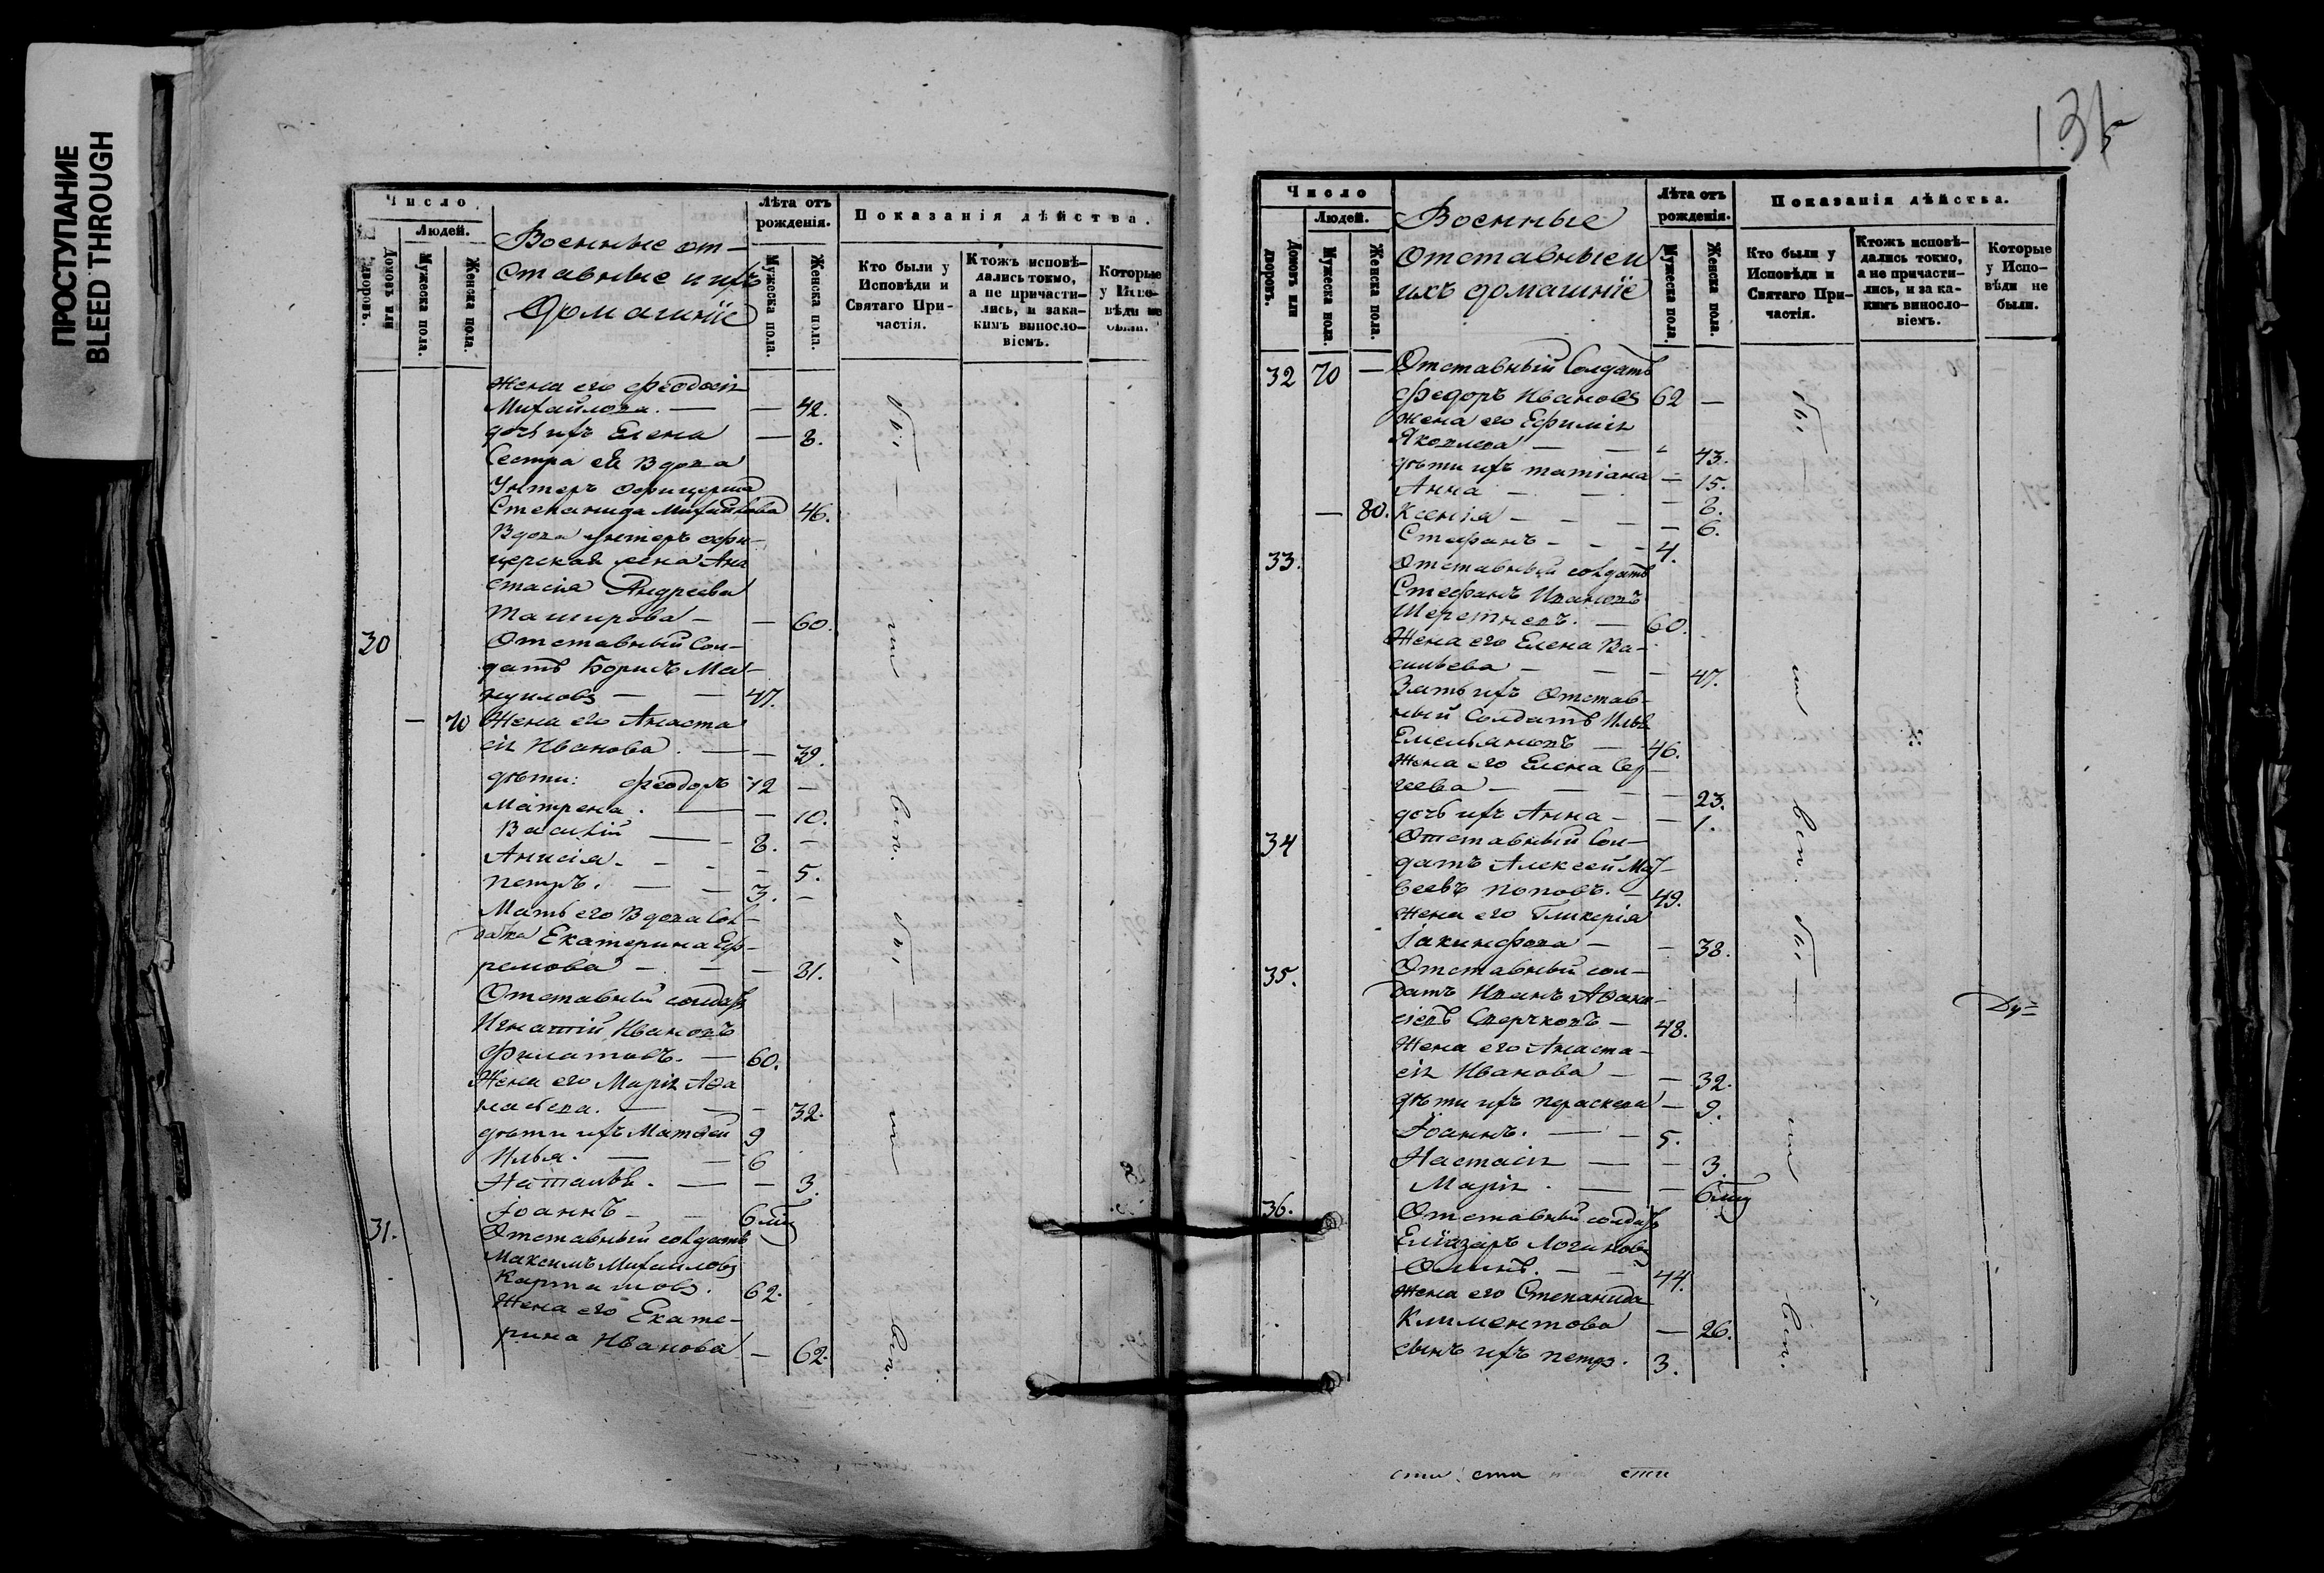 ПРОСТУПАНИЕ
BLEED THROUGH
Число
Людей.
Домовъ или дворовъ.
Мужеска пола.
Женска пола.
Военные от-
ставные и ихъ
домашніе
Лѣта отъ
рожденія.
Мужеска пола.
Женска пола.
Показанія дѣйства.
Кто были у
Исповѣди и
Святаго При-
частія.
Ктожъ исповѣ-
дались токмо,
а не причасти-
лись, и зака-
кимъ винosло-
віемъ.
Которые
у Испо-
вѣди не
были.
Жена его Феодосія
Михайлова. — — 42.
дочь ихъ Елена — 8.
Сестра ей Вдова
Унтеръ Офицерша
Степанида Михайлова 46.
Вдова унтеръ офи-
церская жена Ана
стасія Андреева
Таширова — — 60.
30 Отставный Сол-
датъ Борисъ Ма-
нуиловъ — — 47.
— 70 Жена его Анаста
сія Иванова. — — 39.
дѣти: Феодоръ 12 —
Матрена. — — 10.
Василій — — 8. —
Анисія. — — — 5.
Петръ. — — 3. —
Мать его Вдова Сол-
датка Екатерина Еф-
ремова — — — 81.
Отставный солдатъ
Игнатій Ивановъ
Филатовъ. — 60.
Жена его Марія Ада
мова. — — — 32.
дѣти ихъ Матѳей 9
Илья. — — 6
Наталья. — — 3.
Іоаннъ — — 6 мц
31. Отставный солдатъ
Максимъ Михаиловъ
Карташовъ. 62.
Жена его Екате-
рина Иванова — 62.
бы — ли
вси.
бы — ли
вси.
135
Число
Людей.
Домовъ или дворовъ.
Мужеска пола.
Женска пола.
Военные
отставные и
ихъ домашніе
Лѣта отъ
рожденія.
Мужеска пола.
Женска пола.
Показанія дѣйства.
Кто были у
Исповѣди и
Святаго При-
частія.
Ктожъ исповѣ-
дались токмо,
а не причасти-
лись, и за ка-
кимъ винocло-
віемъ.
Которые
у Испо-
вѣди не
были.
32 70 — Отставный Солдатъ
Федоръ Ивановъ 62 —
Жена его Ефимія
Яковлева — — 43.
дѣти ихъ Татіана — 15.
Анна — — — 8.
— 80. Ксенія — — — 6.
Стефанъ — — 4.
33. Отставный солдатъ
Стефанъ Ивановъ
Шеретневъ. — 60.
Жена его Елена Ва-
сильева — — — 47.
Зять ихъ Отстав-
ный Солдатъ Илья
Емельяновъ — 46.
Жена его Елена Сер-
геева — — — 23.
дочь ихъ Анна — — 1.
34 Отставный Сол-
датъ Алексей Мат-
веевъ Поповъ. — 49.
Жена его Гликерія
Іакинфова — — 38.
35. Отставный сол-
датъ Иванъ Аѳана-
сіевъ Сверчковъ — 48.
Жена его Анаста-
сія Иванова — — 32.
дѣти ихъ Параскева — 9.
Іоаннъ. — — 5.
Настасія — — 3.
Марія. — — 6 мц
36. Отставный солдатъ
Еліазаръ Логиновъ
— — 44.
Жена его Степанида
Климентова — 26.
сынъ ихъ Петръ. 3.
бы — ли
вси.
бы — ли
вси.
сти сти сти